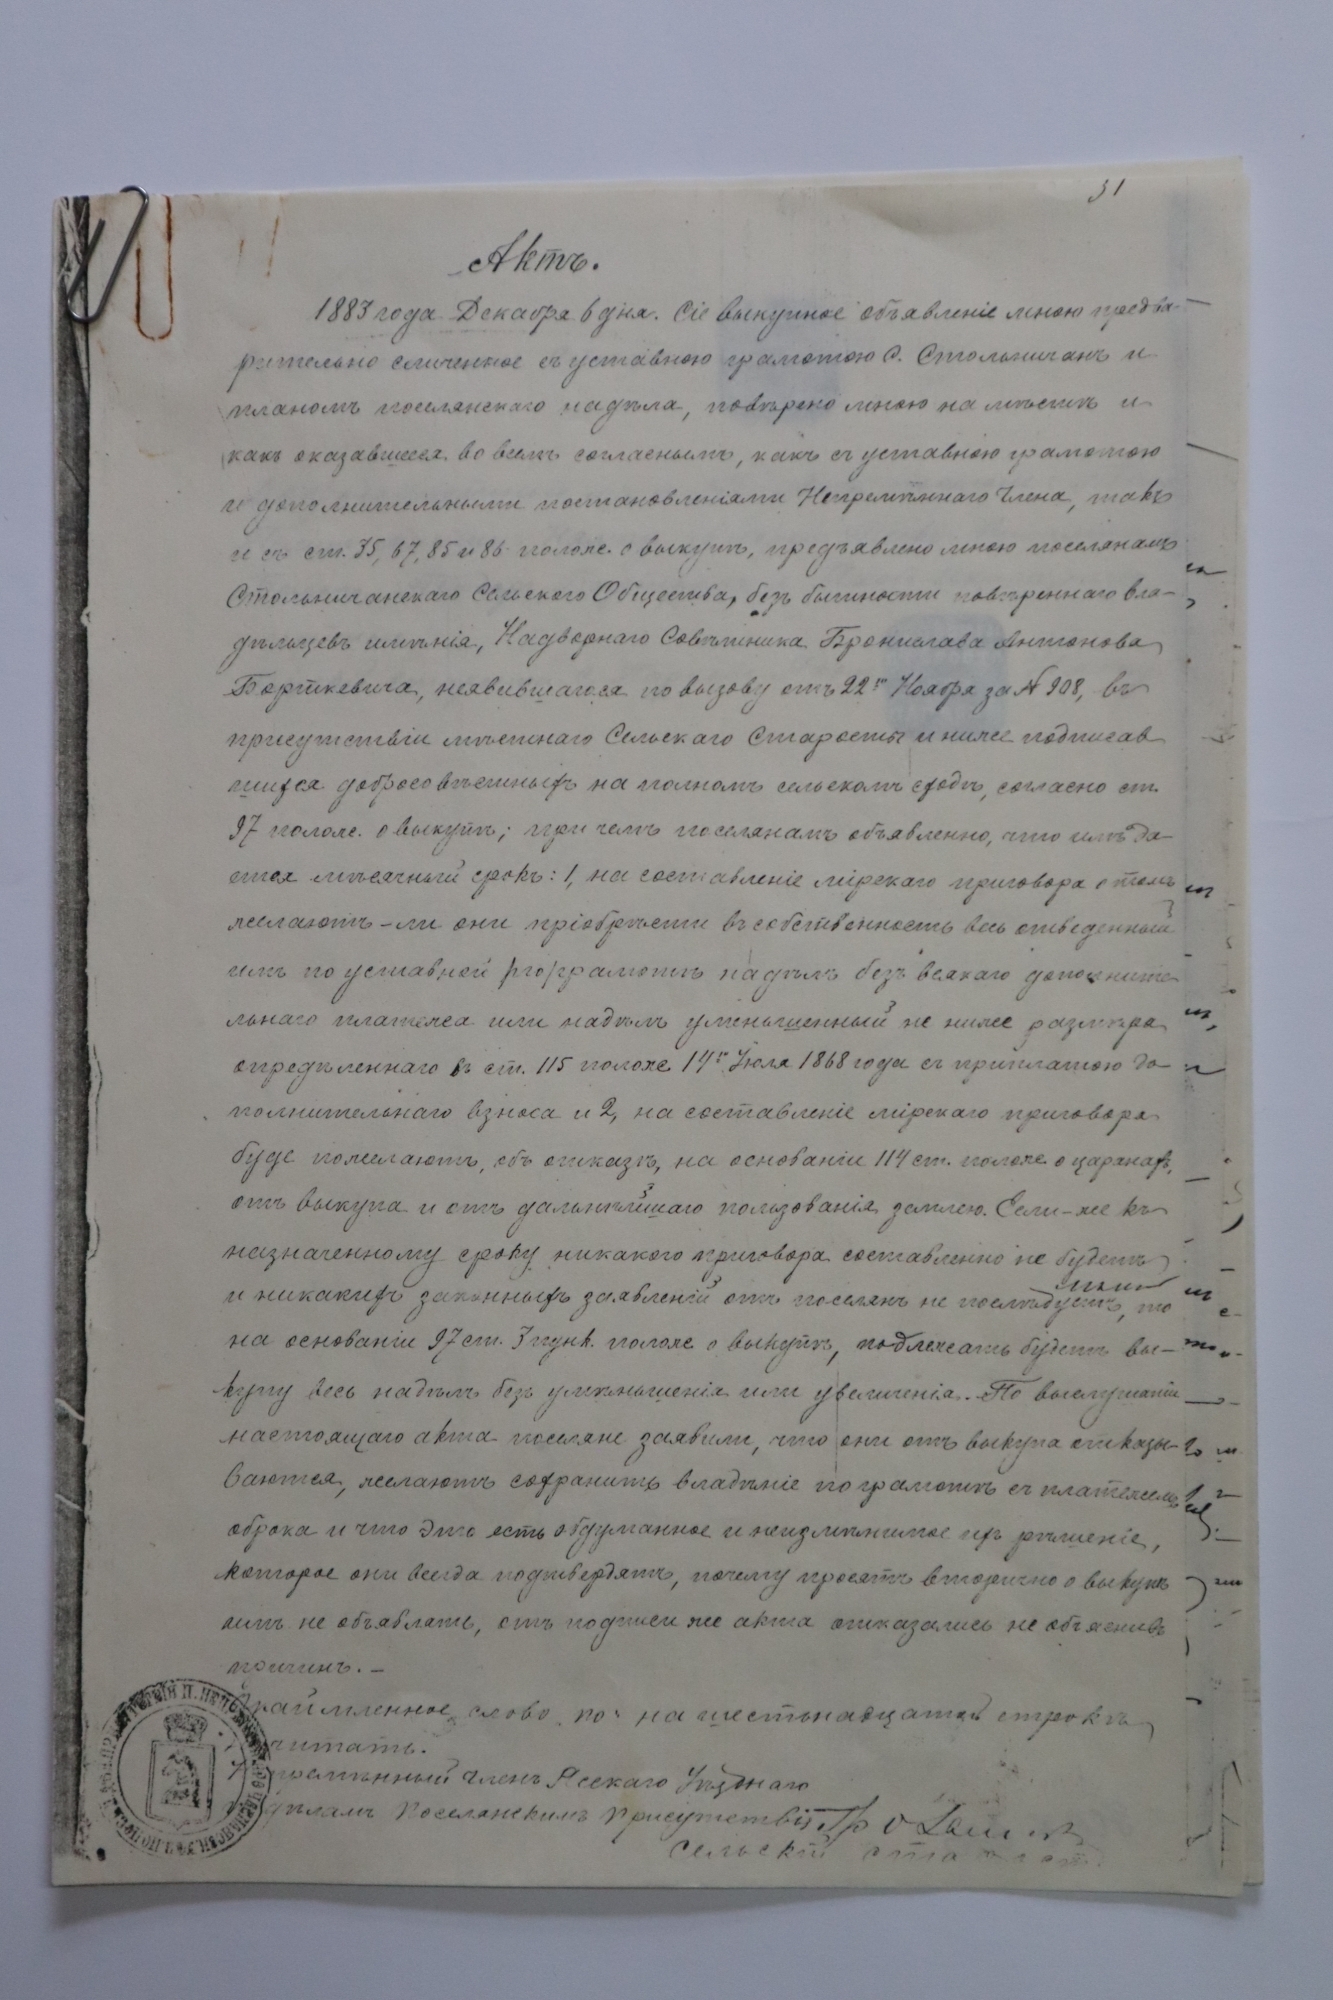 31
Актъ.
1883 года Декабря 6 дня. Сіе выкупное объявленіе мною предва-
рительно сличенное съ уставною грамотою С. Стольничанъ и
планомъ поселянскаго надѣла, повѣрено мною на мѣстѣ и
какъ оказавшееся во всемъ согласнымъ, какъ съ уставною грамотою
и дополнительными постановленіями Непремѣннаго Члена, такъ
и съ ст. 35, 67, 85 и 86 полож. о выкупѣ, предъявлено мною поселянамъ
Стольничанскаго Сельского Общества, безъ бытности повѣреннаго вла-
дѣльцевъ имѣнія, Надворнаго Совѣтника Бронислава Антонова
Борткевича, неявившагося по вызову отъ 22го Ноября за № 908, въ
присутствіи мѣстнаго Сельскаго Старосты и ниже подписав
шихся добросовѣстныхъ на полномъ сельскомъ сходѣ, согласно ст.
97 полож. о выкупѣ; при чемъ поселянамъ объявленно, что имъ да-
ется мѣсячный срокъ: 1, на составленіе мірскаго приговора о томъ
желаютъ-ли они пріобрѣсти въ собственность весь отведенный
имъ по уставной (по) грамотѣ надѣлъ безъ всякаго дополните-
льнаго платежа или надѣлъ уменьшенный не ниже размѣра
опредѣленнаго въ ст. 115 полож. 14го Іюля 1868 года съ приплатою до-
полнительнаго взноса и 2, на составленіе мірскаго приговора
буде пожелаютъ, объ отказѣ, на основаніи 114 ст. полож. о царанахъ,
отъ выкупа и отъ дальнѣйшаго пользованія землею. Если-же къ
назначенному сроку никакого приговора составленно не будетъ
и никакихъ законныхъ заявленій отъ поселянъ не послѣдуетъ, то
на основаніи 97 ст. 3 пунк. полож. о выкупѣ, подлежать будетъ вы-
купу весь надѣлъ безъ уменьшенія или увеличенія. По выслушаніи
настоящаго акта поселяне заявили, что они отъ выкупа отказы-
ваются, желаютъ сохранить владѣніе по грамотѣ съ платежемъ
оброка и что это есть обдуманное и неизмѣнимое ихъ рѣшеніе,
которое они всегда подтвердятъ, почему просятъ вторично о выкупѣ
имъ не объявлять, отъ подписи же акта отказались не объяснивъ
причинъ. —
слово "по" на шестьнадцатой строкѣ
читать.
Непремѣнный Членъ Ясскаго Уѣзднаго
Поселянскимъ Присутствія
сельскій